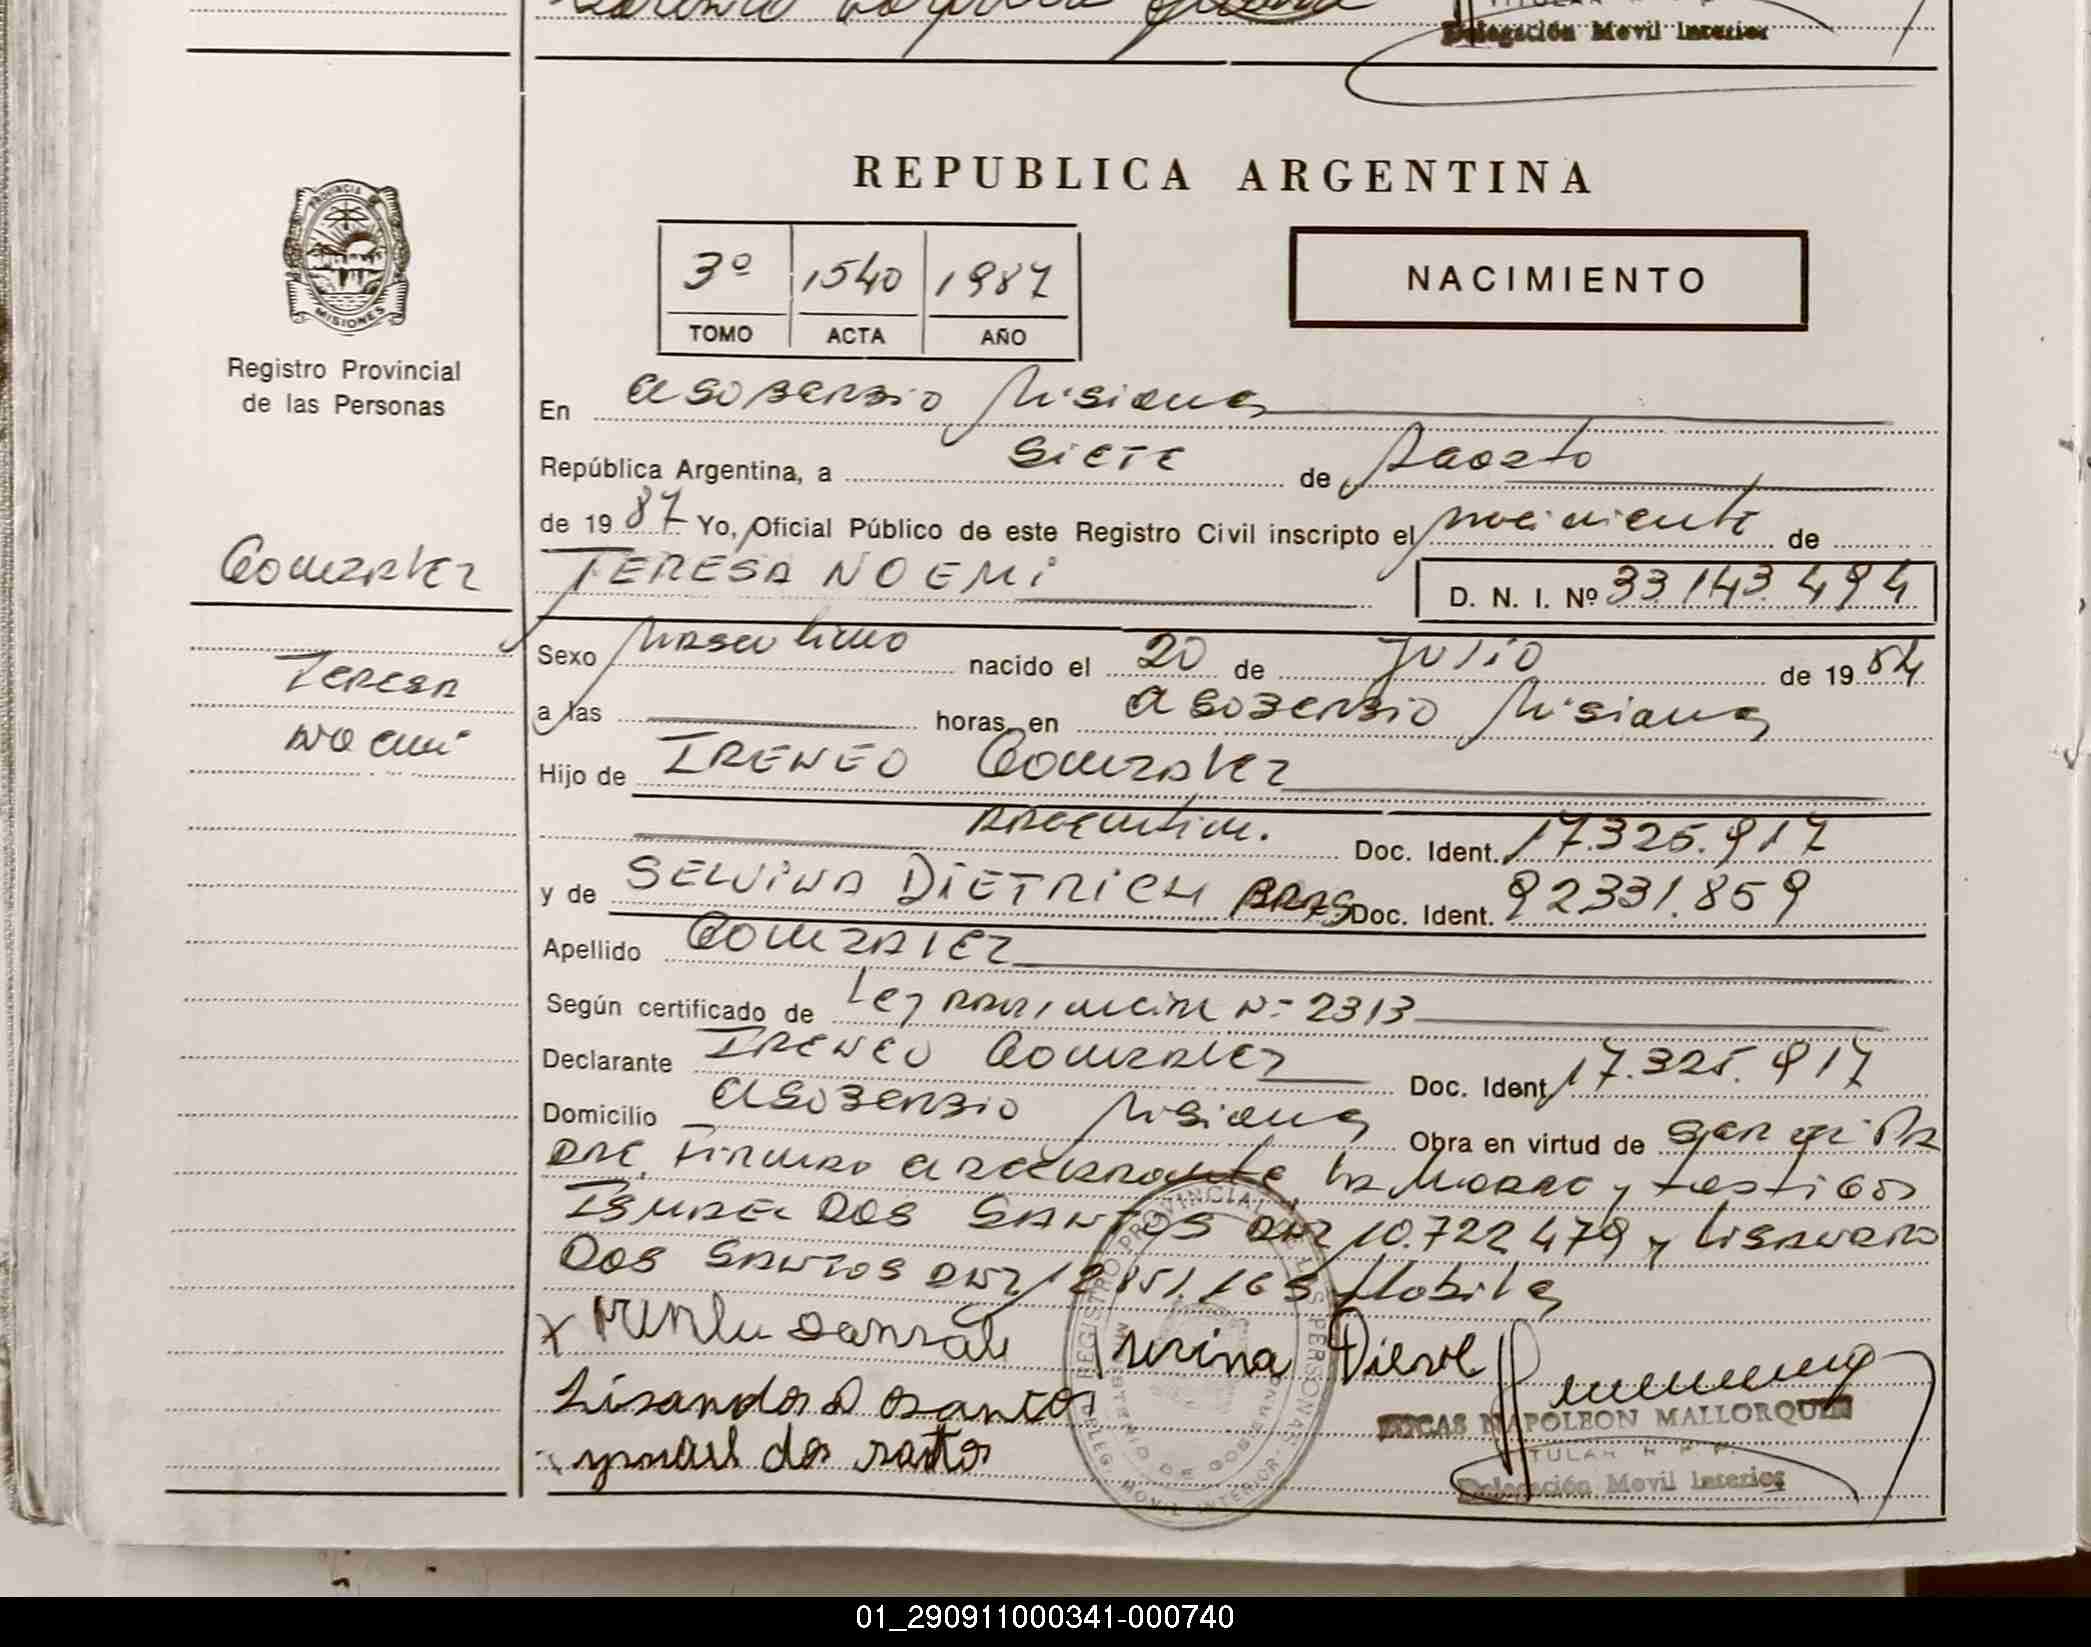 Delegación Movil Interior
REPUBLICA ARGENTINA
PROVINCIA DE
MISIONES
3º 1540 1987
TOMO ACTA AÑO
NACIMIENTO
Registro Provincial
de las Personas
En Misiones
República Argentina, a siete de Agosto
de 19 87 Yo, Oficial Público de este Registro Civil inscripto el nacimiento de
Gonzalez
TERESA NOEMi D. N. I. Nº 33.143.494
Sexo Masculino nacido el 20 de Julio de 19 84
Teresa
Noemi
a las horas, en Misiones
Hijo de IRENEO Gonzalez
Argentino. Doc. Ident. 17.325.917
y de SELVINA DIETRICH BRAS Doc. Ident. 92331.859
Apellido Gonzalez
Según certificado de Ley Provincial Nº 2313
Declarante IRENEO Gonzalez Doc. Ident. 17.325.917
Domicilio Misiones Obra en virtud de
Firman declarante, la Madre y testigos
ISMAEL DOS SANTOS DNI 10.722.479 y Lisandro
DOS SANTOS DNI
Lisandro D osantos
ysmael dos santos
REGISTRO PROVINCIAL DE LAS PERSONAS
MINISTERIO DE GOBIERNO
DELEG. MOVIL INTERIOR
LUCAS NAPOLEON MALLORQUIN
TITULAR R. P. P.
Delegación Movil Interior
01_290911000341-000740